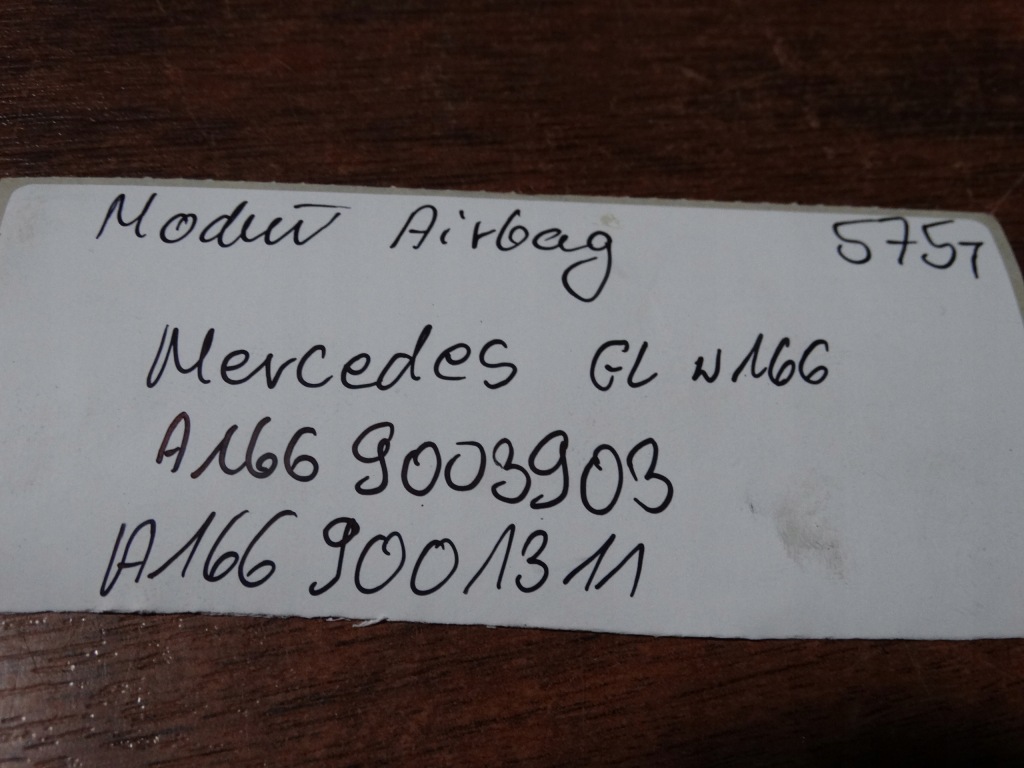 Moduł Airbag 575T
Mercedes GL w166
A166 9003903
A166 9001311